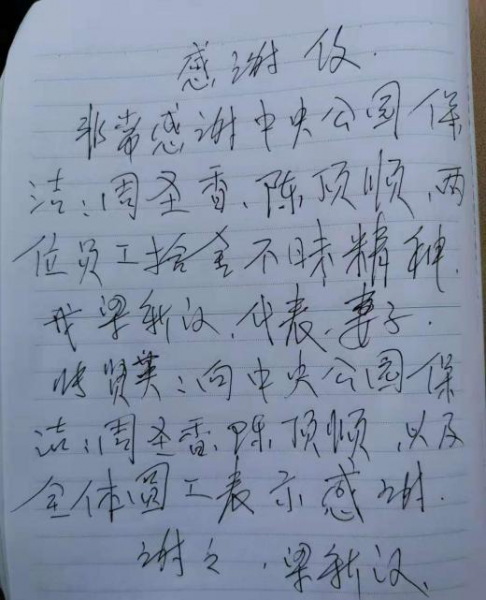 感谢信.
非常感谢中央公园保
洁:周圣香、陈顶顺、两
位员工拾金不昧精神.
我梁新汉、代表、妻子.
贤英:向中央公园保
洁:周圣香、陈顶顺、以及
全体圆工表示感谢.
谢谢.梁新汉.